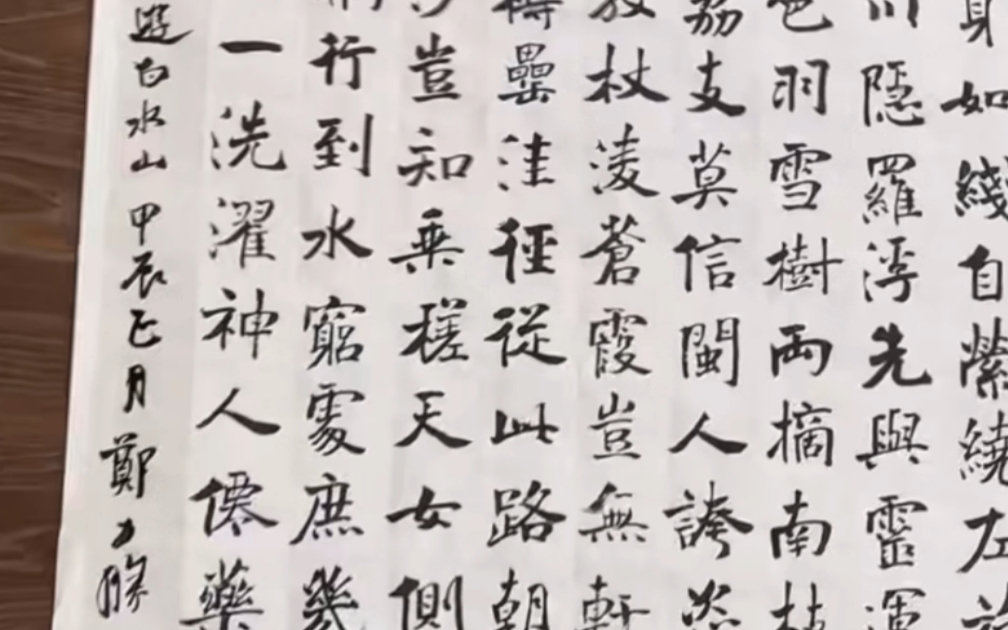 身如綫自縈繞左旋
川隱羅浮先與靈運
色羽雪樹兩摘南枝
荔支莫信閩人誇
放杖淩蒼霞豈無軒
樽罍洼徑從此路朝
豈知乘槎天女側
行到水窮處庶幾
一洗濯神人僊藥
遊白水山 甲辰巳月 鄭力勝